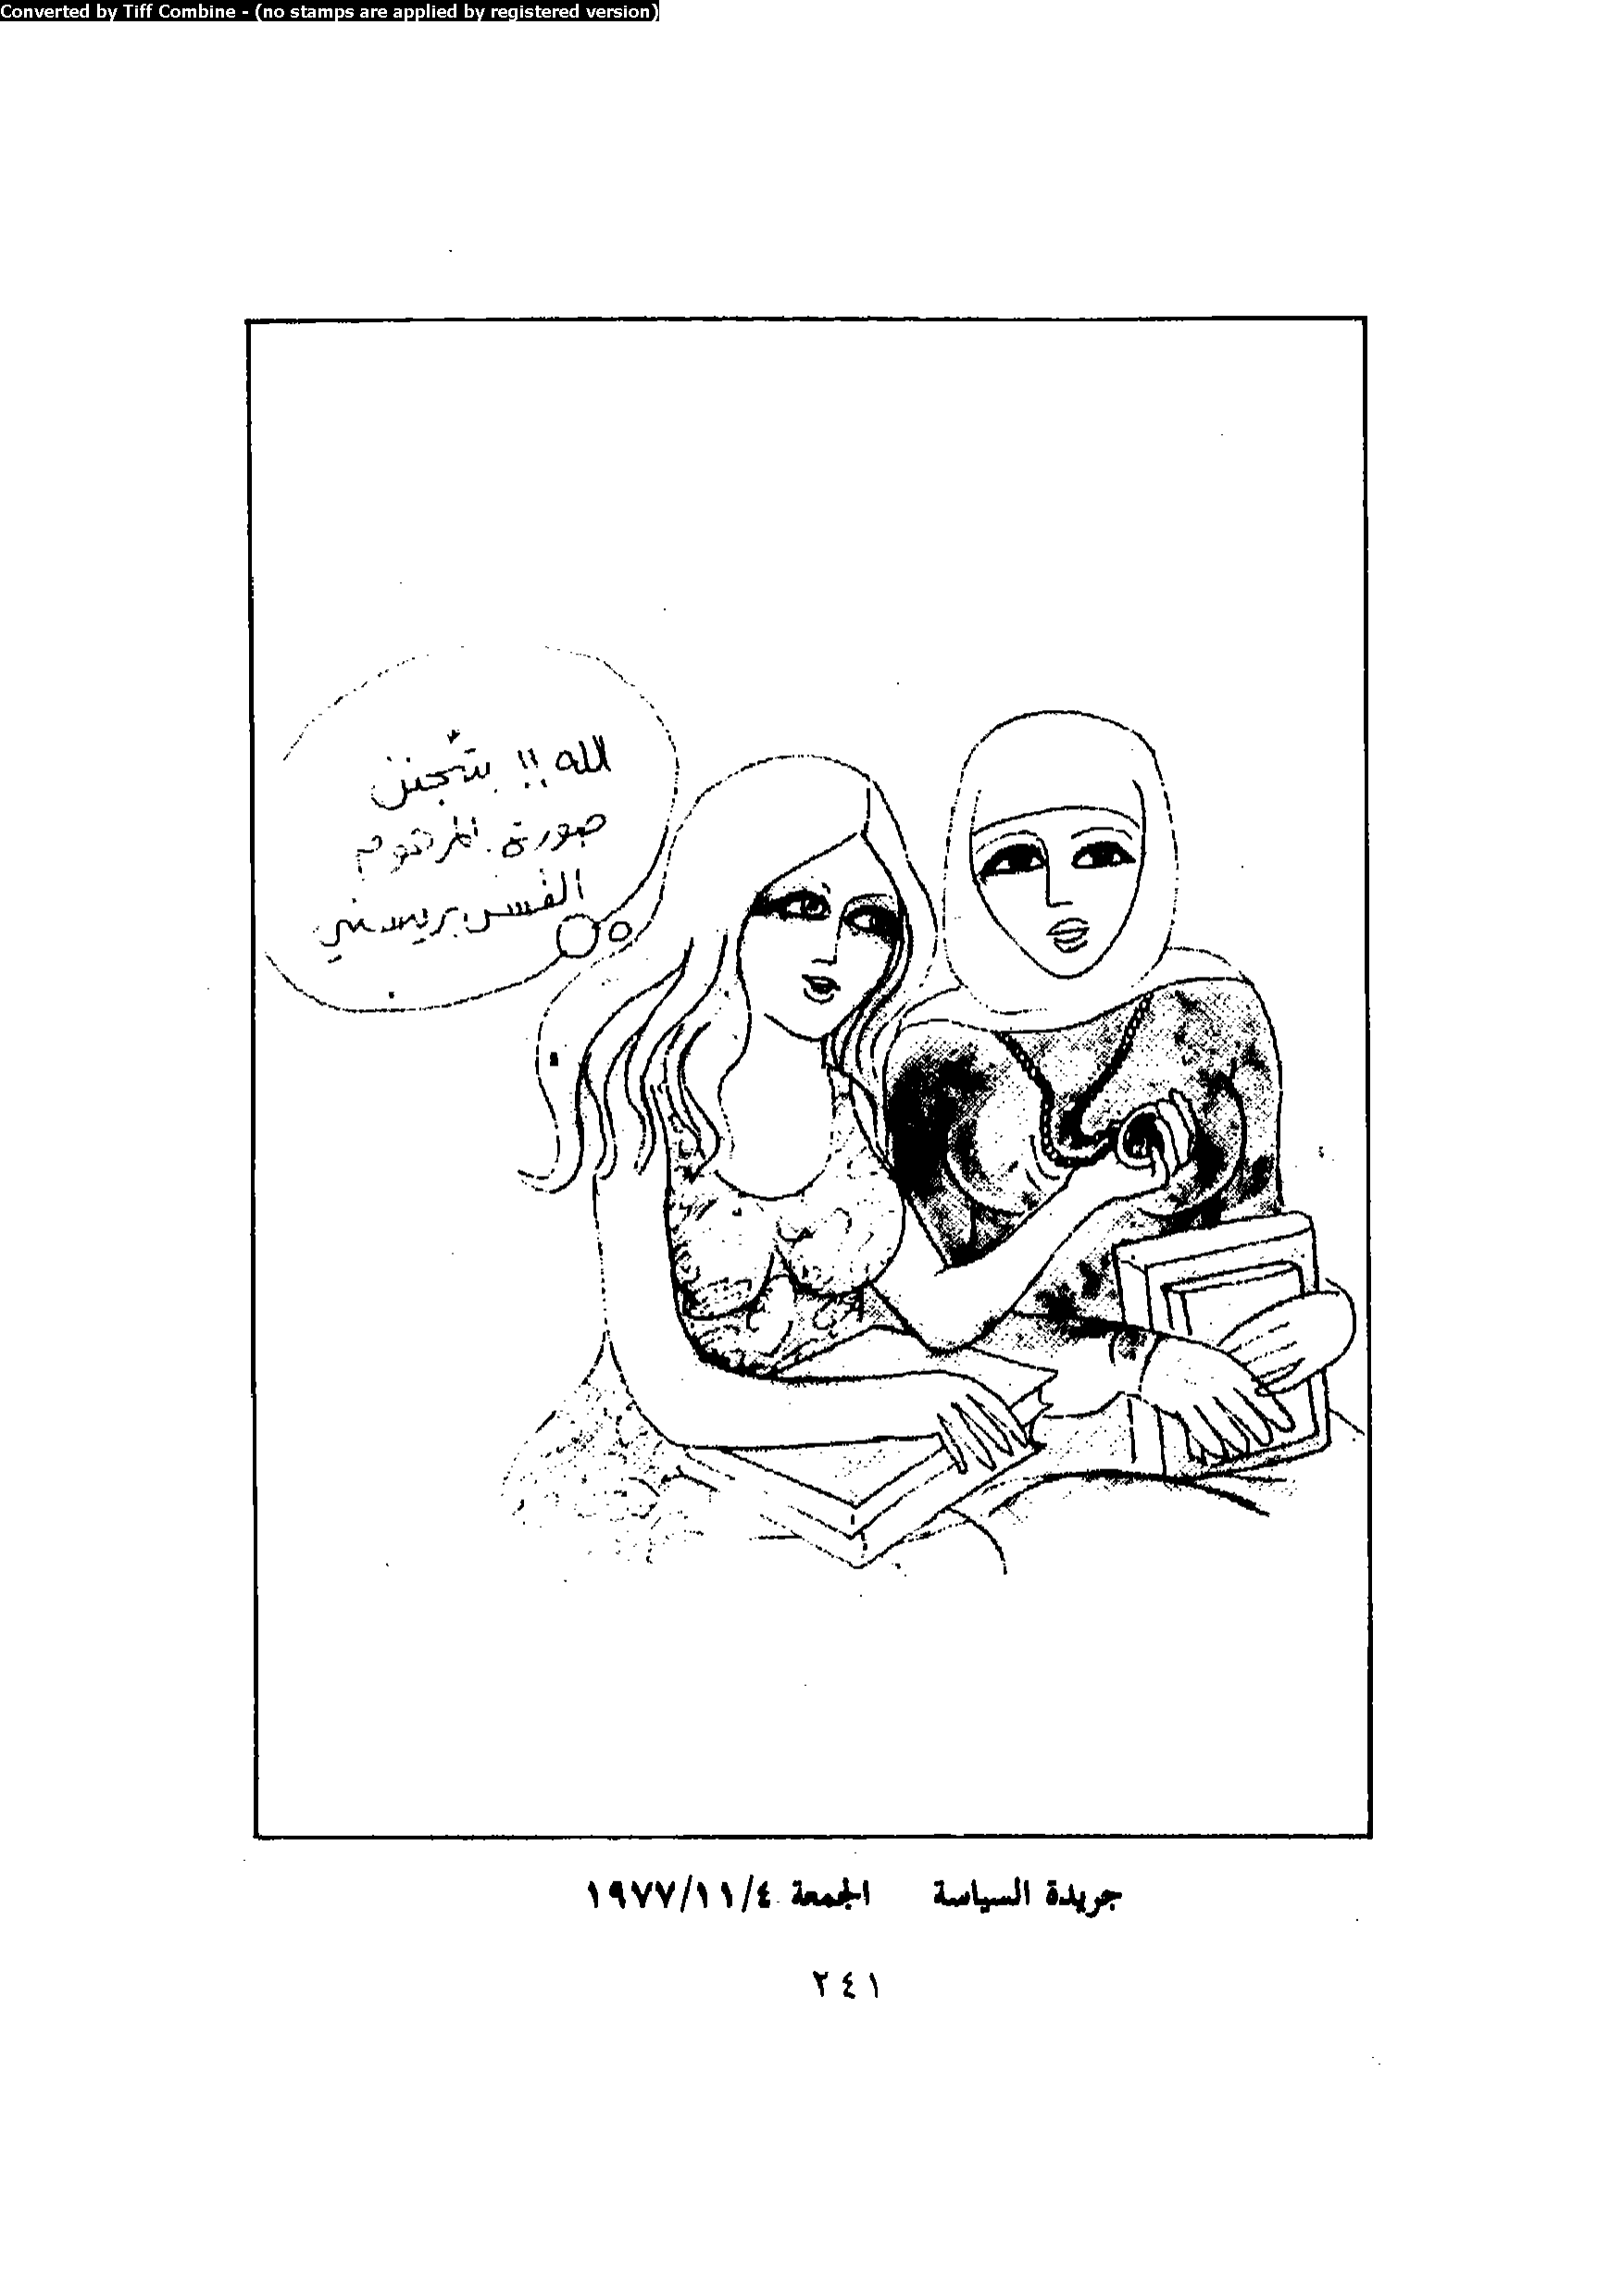 Converted by Tiff Combine - (no stamps are applied by registered version)
الله !! بتجنن
صورة المرحوم
الفس بريسلي
جريدة السياسة الجمعة ١٩٧٧/١١/٤
٢٤١